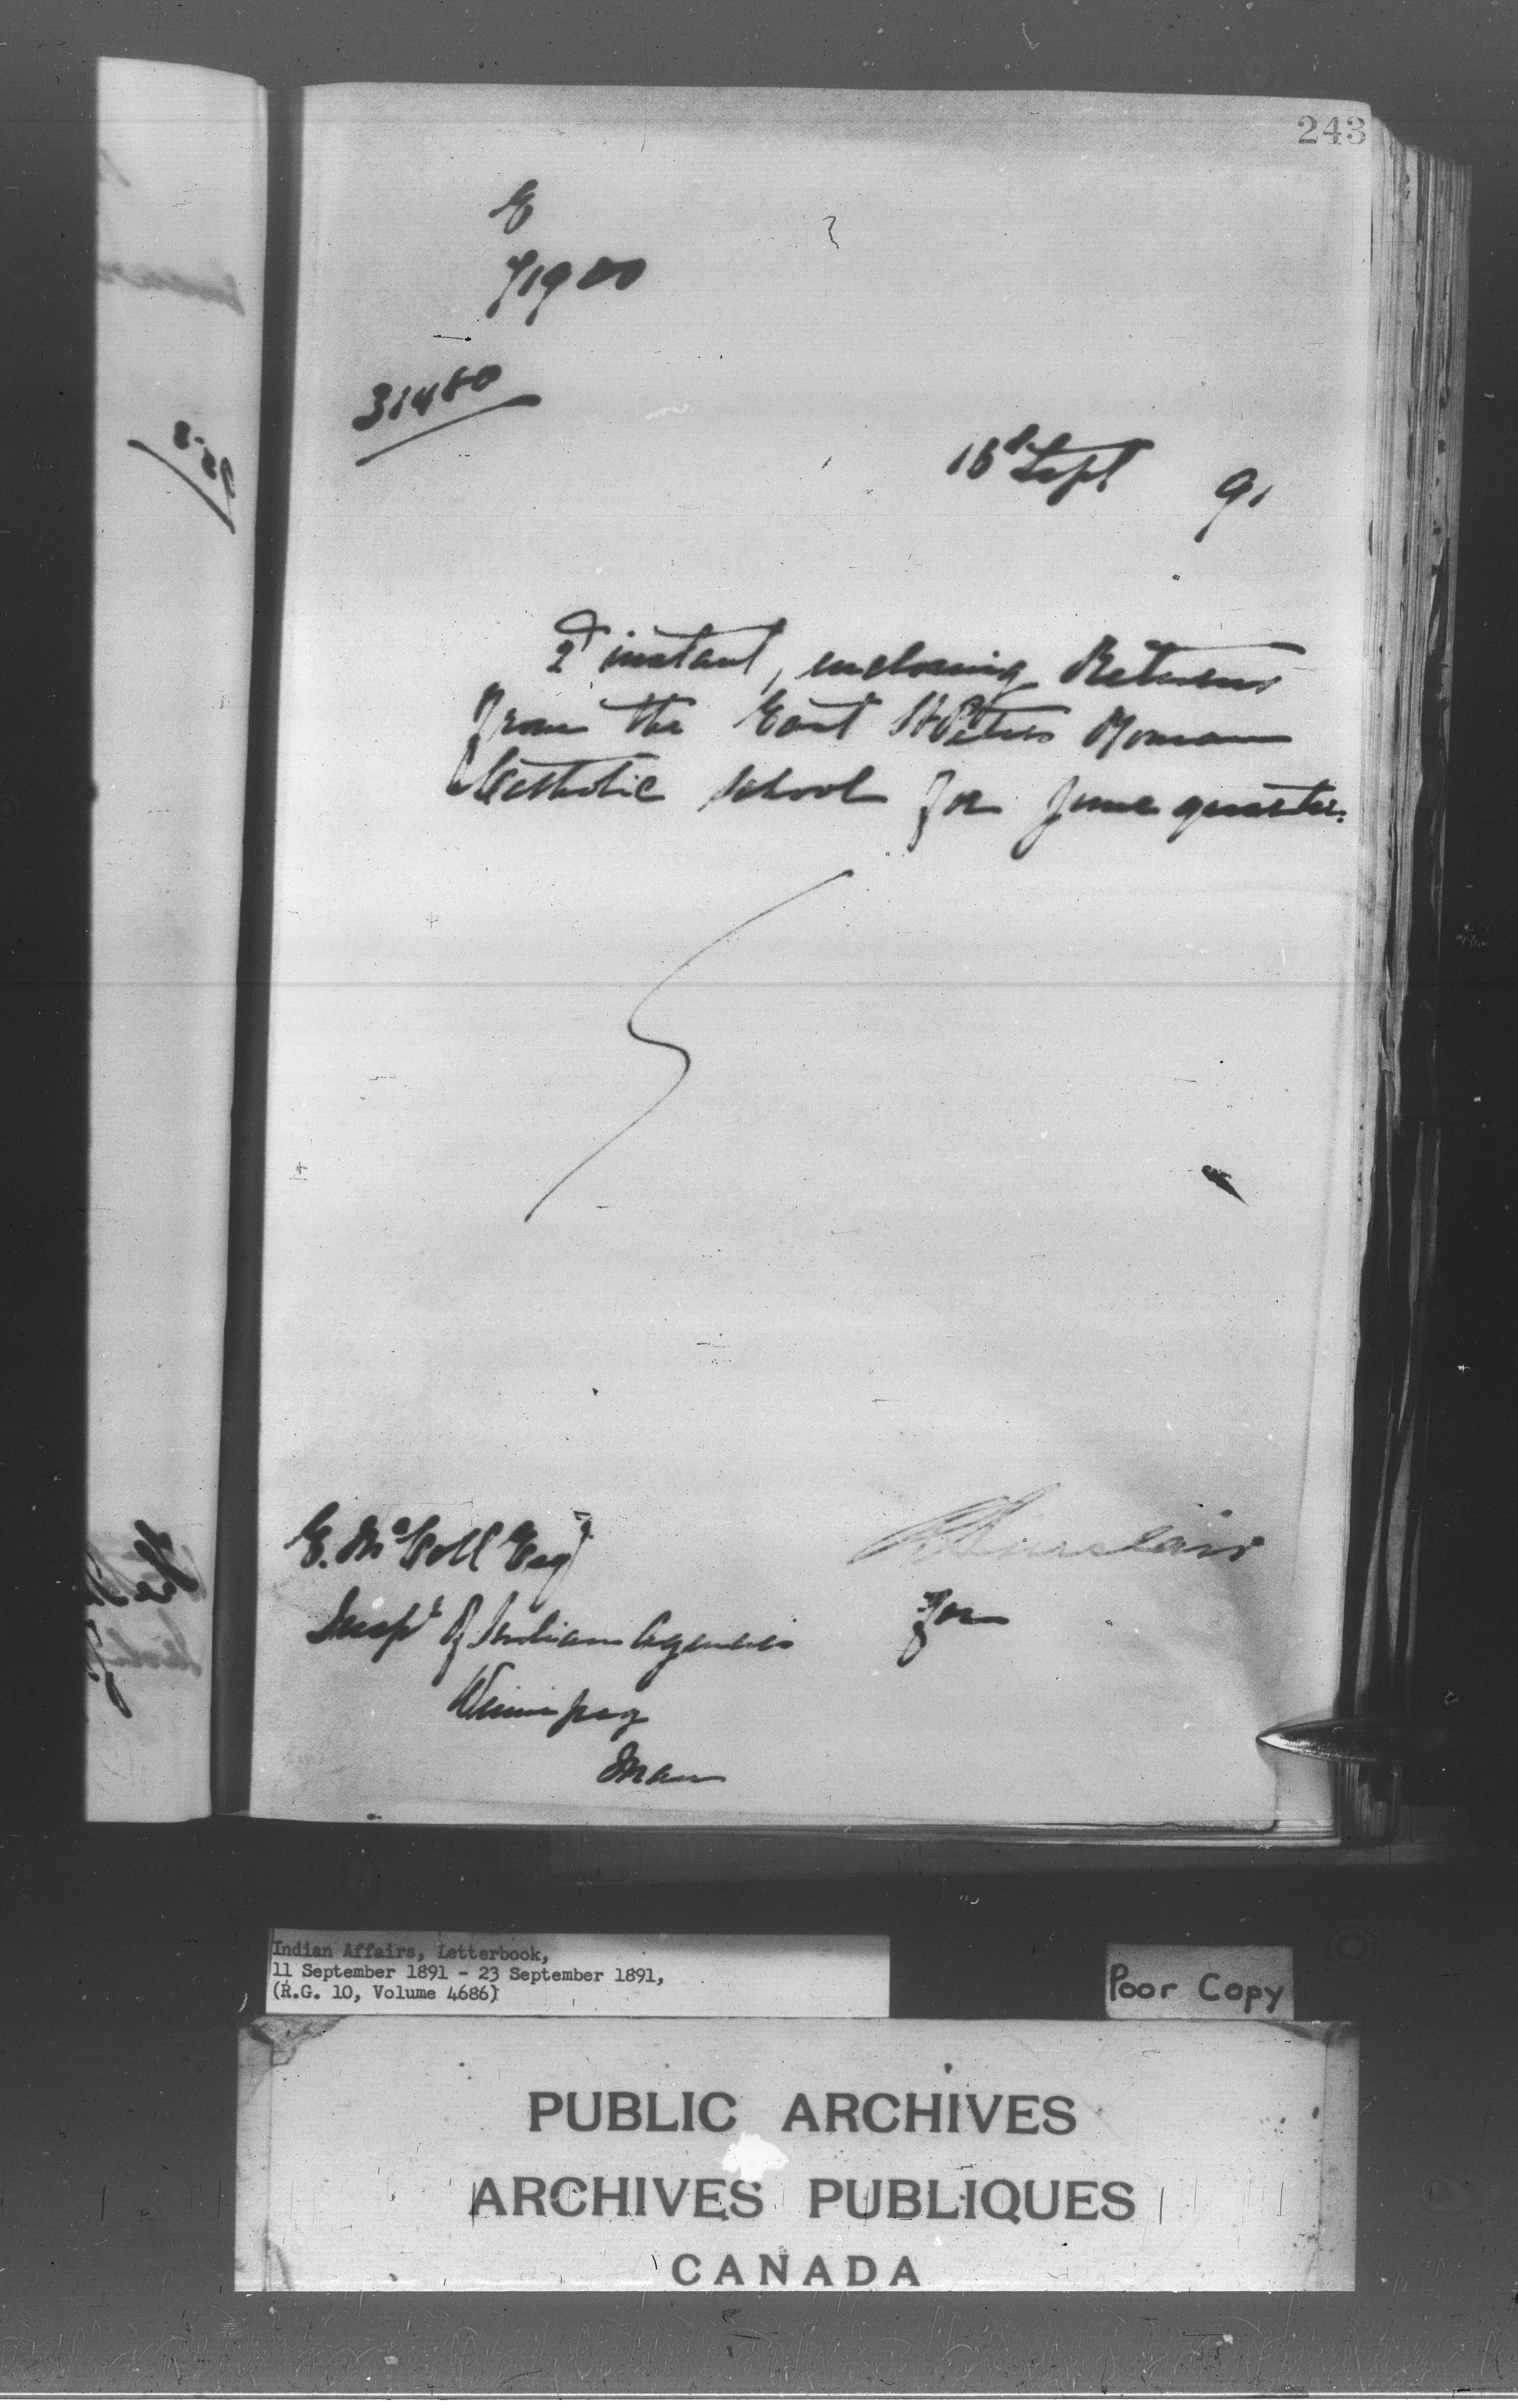 243
E
71900
31480
18th Sept 91
2d instant, enclosing Returns
from the East St Peters Roman
Catholic School for June quarter.
E. McColl Esqr
Inspr of Indian Agencies
Winnipeg
Man
Sinclair
for
Indian Affairs, Letterbook,
11 September 1891 - 23 September 1891,
(R.G. 10, Volume 4686)
Poor Copy
PUBLIC ARCHIVES
ARCHIVES PUBLIQUES
CANADA